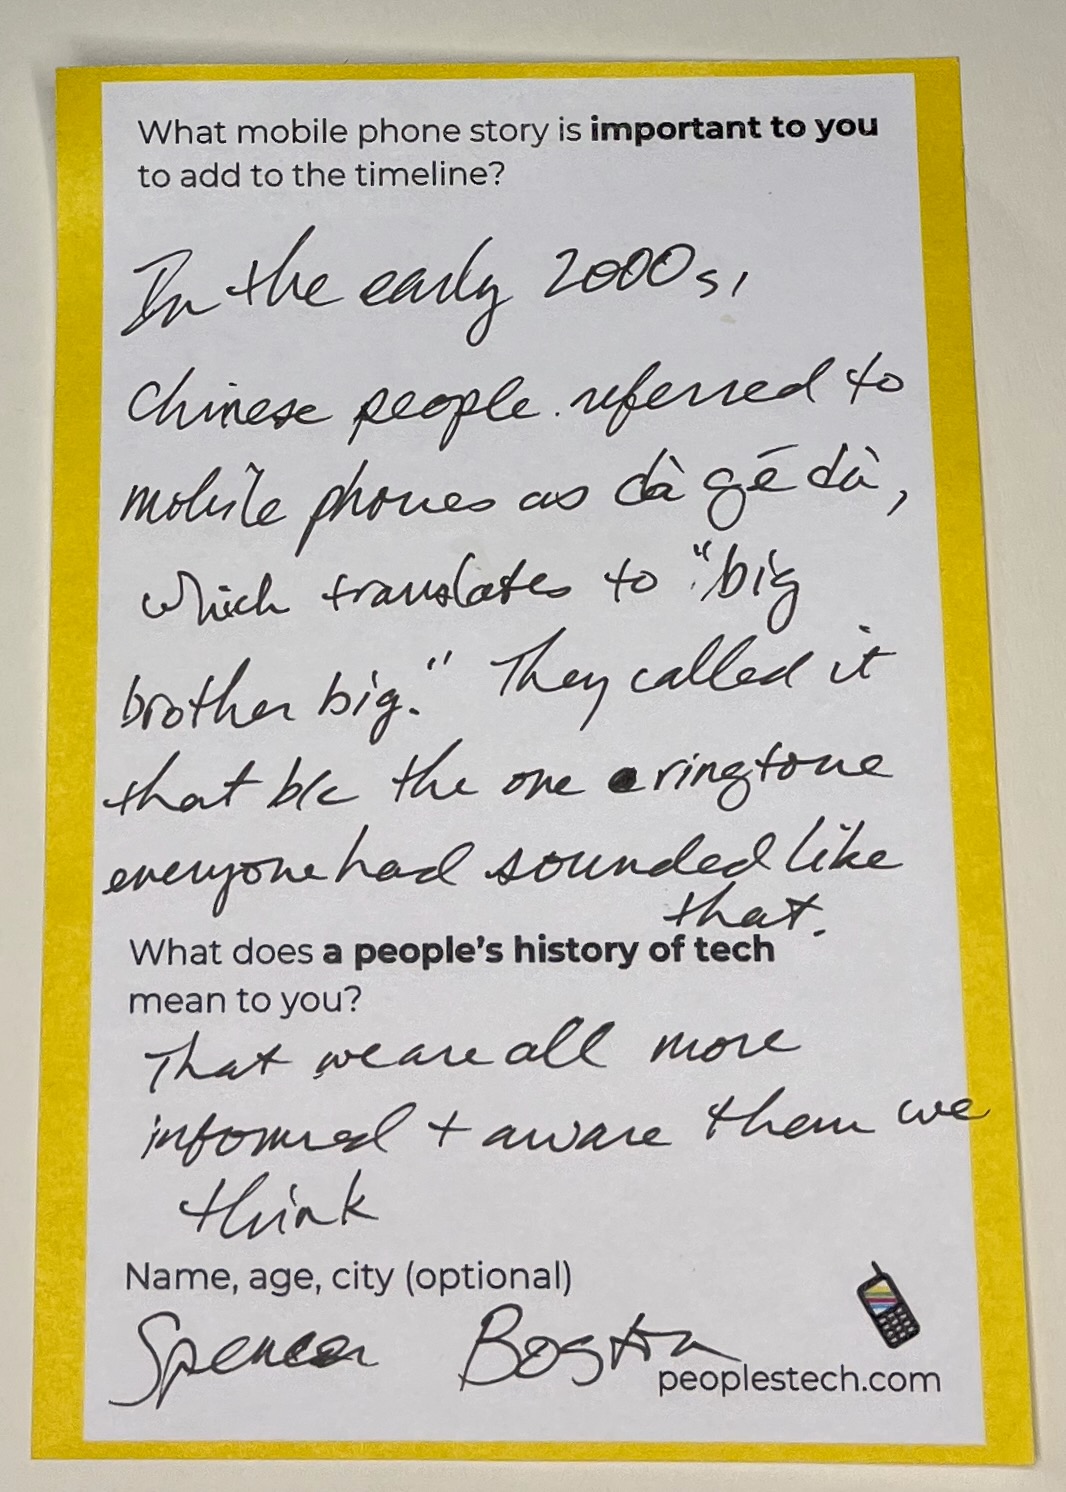 What mobile phone story is important to you
to add to the timeline?
In the early 2000s,
Chinese people referred to
mobile phones as dà gē dà,
which translates to "big
brother big." They called it
that b/c the one ringtone
everyone had sounded like
that.
What does a people's history of tech
mean to you?
That we are all more
informed + aware then we
think
Name, age, city (optional)
Spencer Boston
peoplestech.com